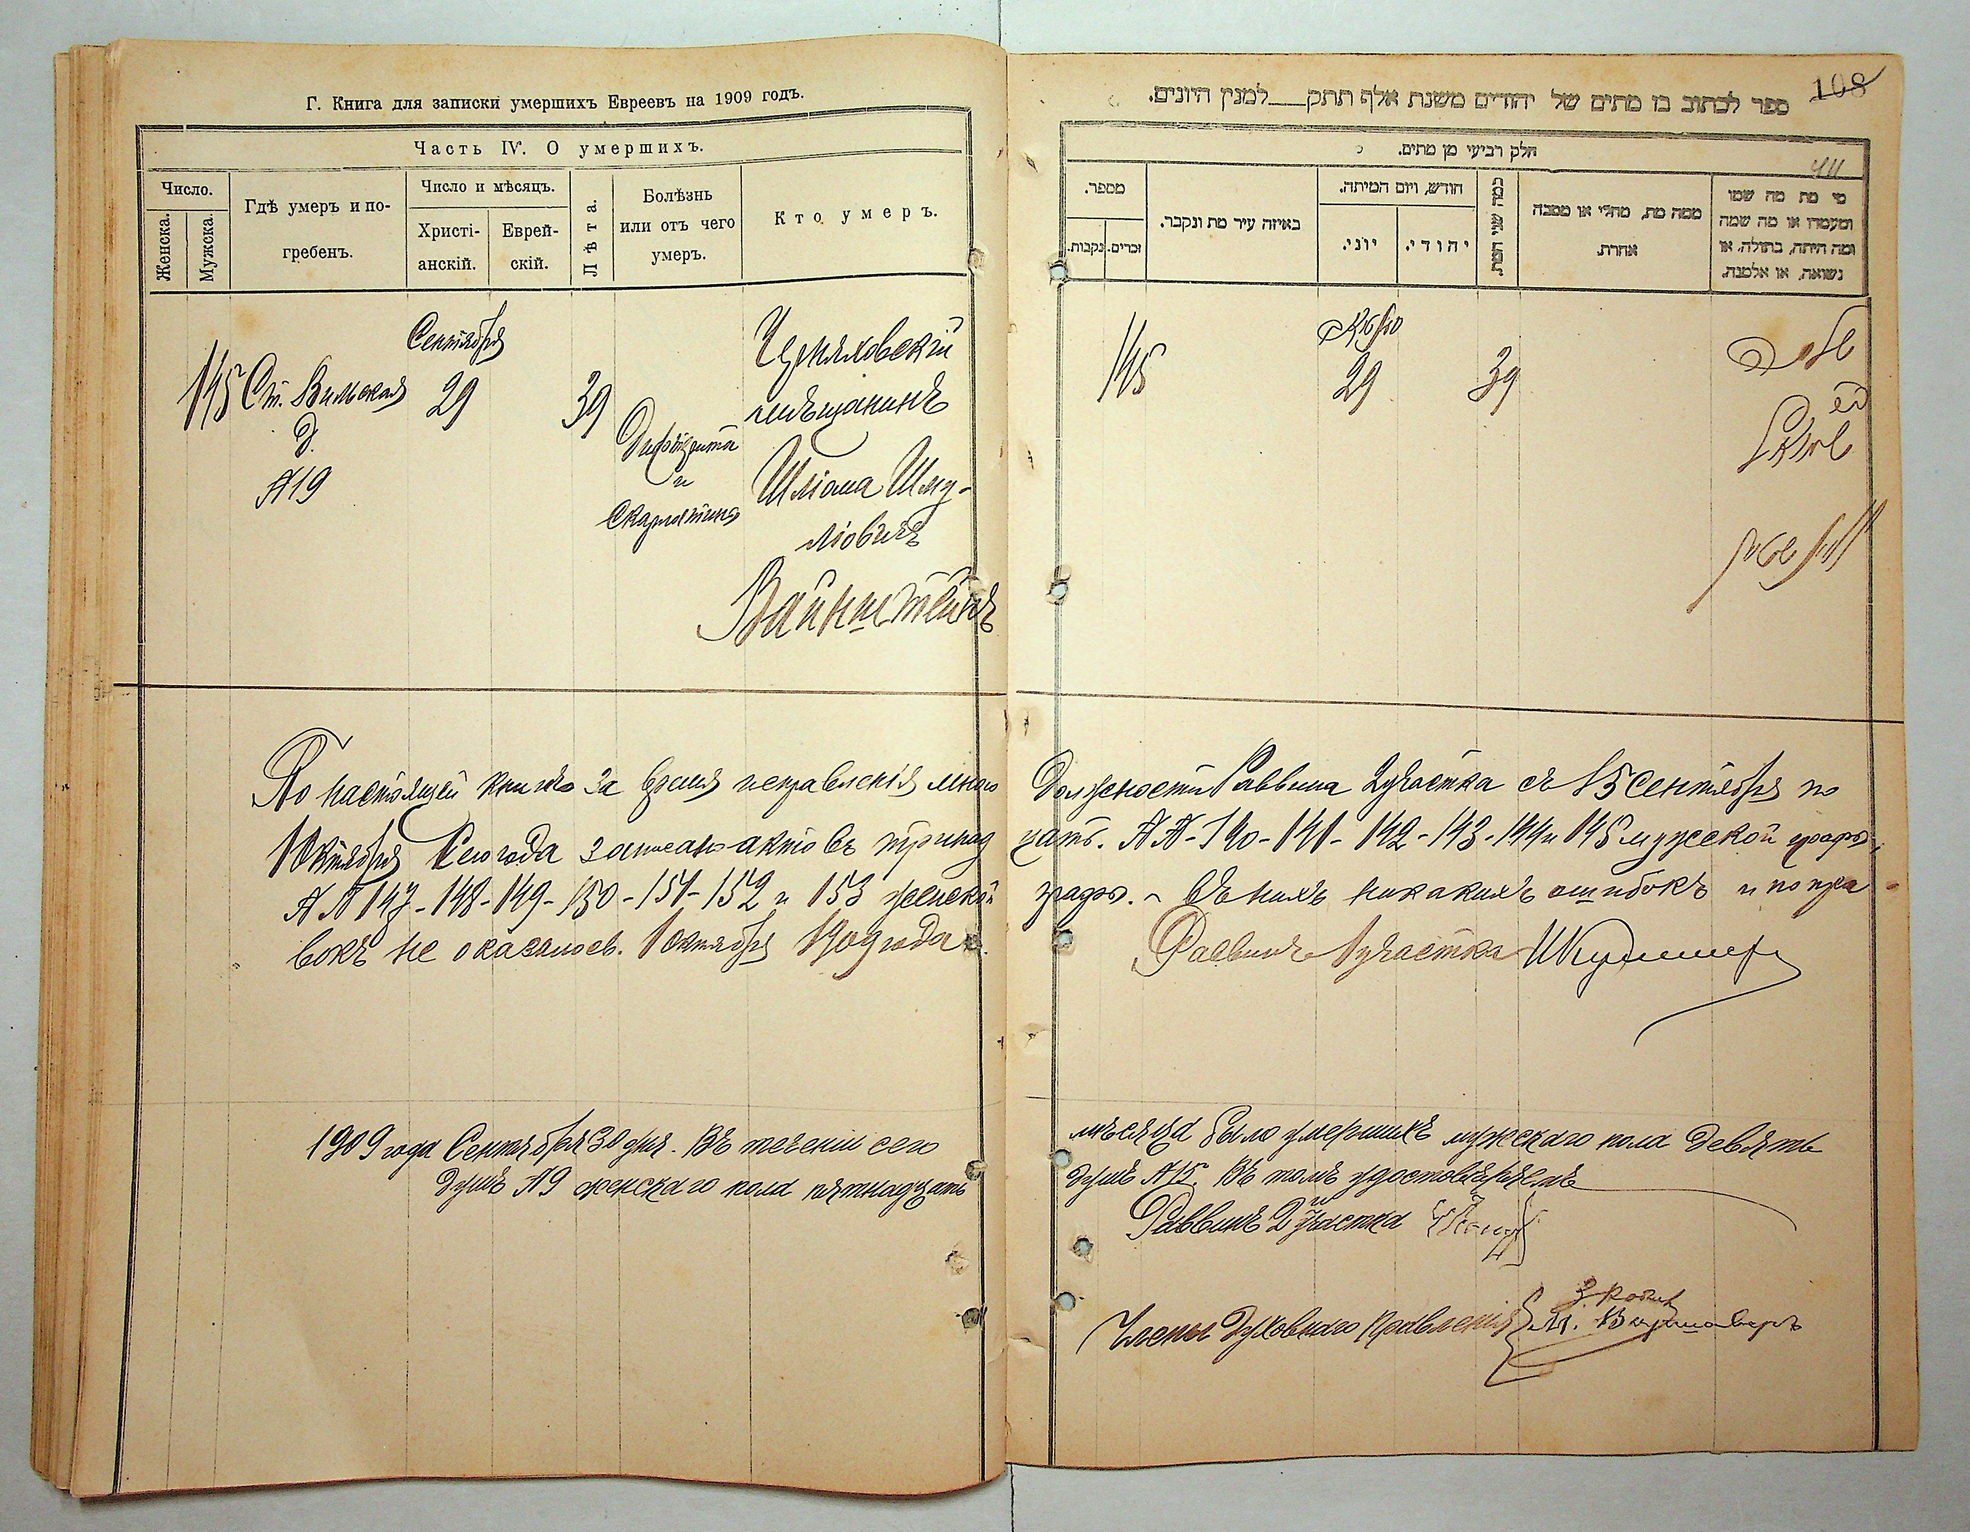 Г. Книга для записки умершихъ Евреевъ на 1909 годъ.
Часть IV. О умершихъ.
Число.
Женска.
Мужска.
Гдѣ умеръ и по-
гребенъ.
Число и мѣсяцъ.
Христі-
анскій.
Еврей-
скій.
Лѣта.
Болѣзнь
или отъ чего
умеръ.
Кто умеръ.
145
Ст. Вильская
д.
№ 19
Сентября
29
39
Дифтерита
и
Скарлатина
Черняховскій
мѣщанинъ
Шліома Шму-
ліовичъ
Вайнштейнъ
По настоящей книгѣ за время исправленія мною
1 Октября сего года записано актовъ тринад
№№ 147-148-149-150-151-152 и 153 женской
вокъ не оказалось. 1 Октября 1909 года
1909 года Сентября 30 дня. Въ теченіи сего
душъ № 9 женскаго пола пятнадцать
108
ספר לכתוב בו מתים של יהודים משנת אלף תתק___למנין היונים.
חלק רביעי מן מתים.
411
מספר.
נקבות.
זכרים.
באיזה עיר מת ונקבר.
חודש, ויום המיתה.
יוני.
יהודי.
כמה שני המת.
ממה מת, מחלי או מסבה
אחרת.
מי מת מה שמו
ומעמדו או מה שמה
ומה היתה, בתולה, או
נשואה, או אלמנה.
145
29
39
должности Раввина 2 участка съ 15 Сентября по
цать. №№-140-141-142-143-144 и 145 мужской графы,
графы. Въ нихъ никакихъ ошибокъ и попра
Раввинъ 1 участка
мѣсяца было умершихъ мужскаго пола девять
душъ № 15. Въ томъ удостовѣряемъ
Раввинъ 2 участка
Члены Духовнаго Правленія